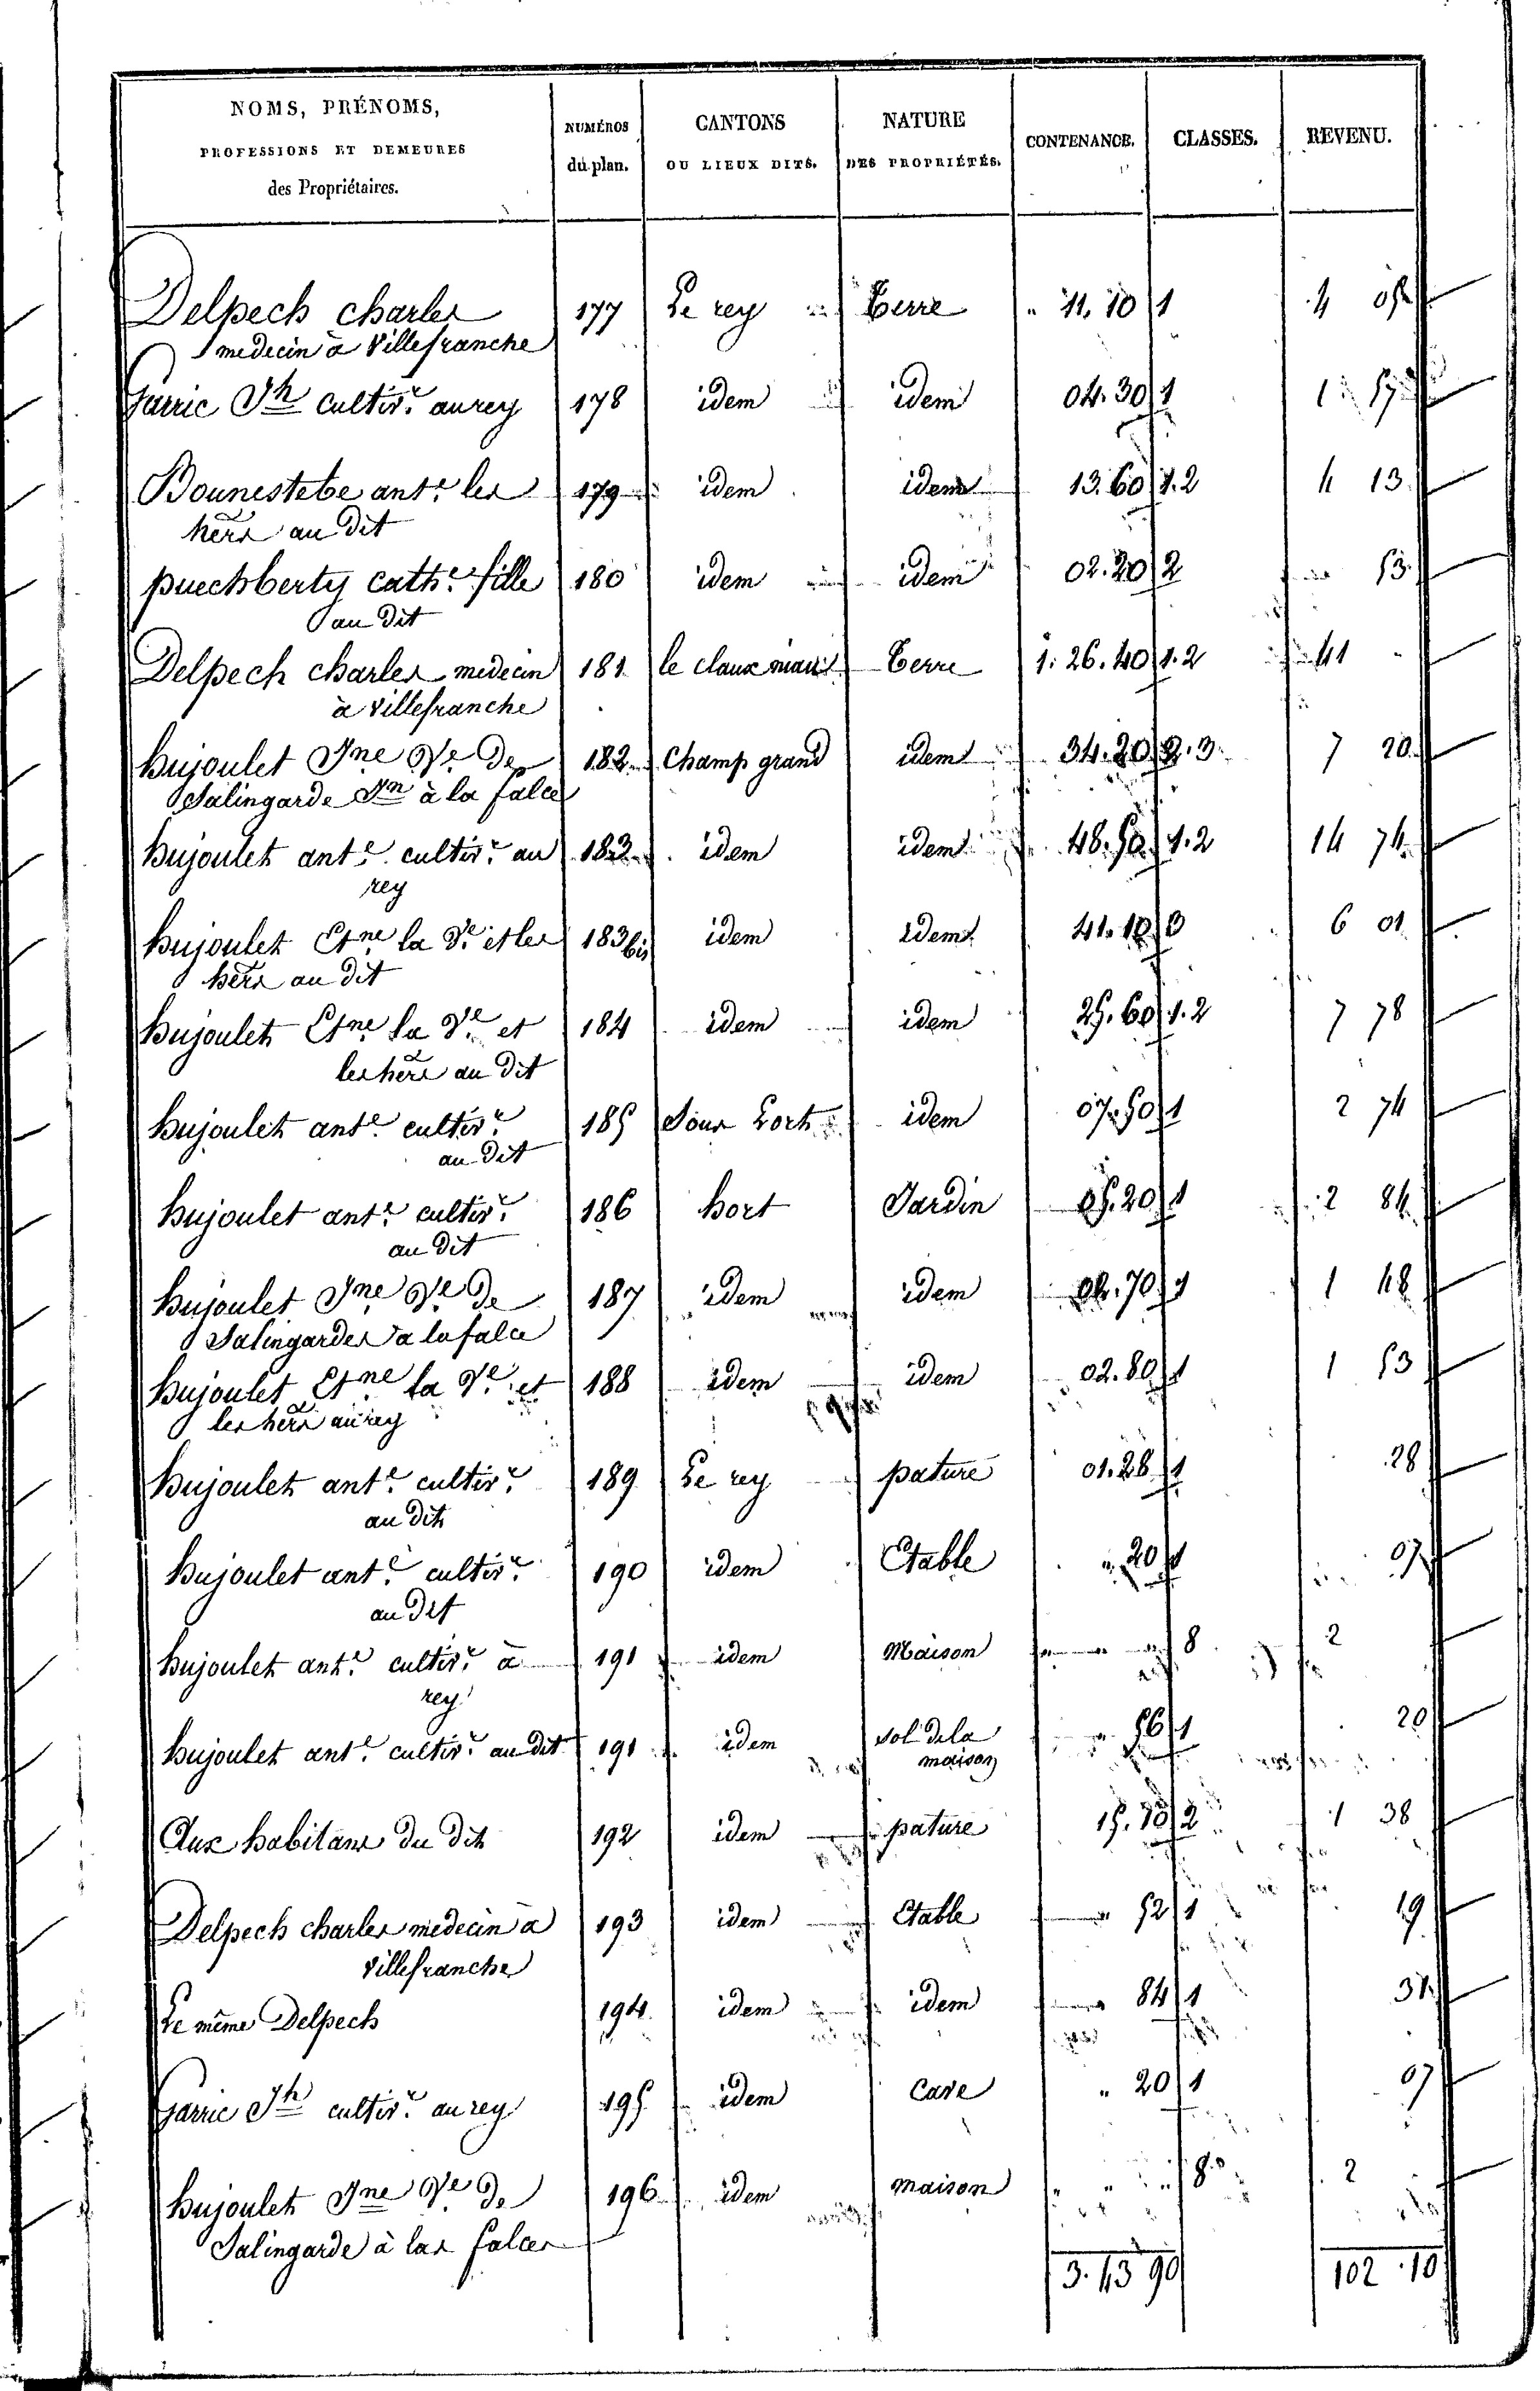 NOMS, PRÉNOMS,
PROFESSIONS ET DEMEURES
des Propriétaires.
NUMÉROS
du plan.
CANTONS
OU LIEUX DITS.
NATURE
DES PROPRIÉTÉS.
CONTENANCE.
CLASSES.
REVENU.
Delpech charles 177 Le rey Terre " 11. 10 1 4 05
medecin à Villefranche
Garric Jh cultivr au rey 178 idem idem 04. 30 1 1 57
Bounestebe ante les 179 idem idem 13. 60 1.2 4 13
hers au dit
puechberty cathe fille 180 idem idem 02. 20 2 53
au dit
Delpech charles medecin 181 le claux Terre 1. 26. 40 1.2 41
à Villefranche
hujoulet Jne Ve De 182 Champ grand idem 34. 20 2.3 7 20
Salingarde Jn à la falce
hujoulet ante cultivr au 183 idem idem 48. 50 1.2 14 74
rey
hujoulet Etne la Ve et les 183 bis idem idem 41. 10 3 6 01
hers au dit
hujoulet Etne la Ve et 184 idem idem 25. 60 1.2 7 78
les hers au dit
hujoulet ante cultivr 185 Sous Lort idem 07. 50 1 2 74
au dit
hujoulet ante cultivr 186 hort Jardin 05. 20 1 2 84
au dit
hujoulet Jne Ve De 187 idem idem 02. 70 1 1 48
Salingardes a la falce
hujoulet Etne la Ve et 188 idem idem 02. 80 1 1 53
les hers au rey
hujoulet ante cultivr 189 Le rey pature 01. 28 1 28
au dit
hujoulet ante cultivr 190 idem Etable " 20 1 07
au dit
hujoulet ante cultivr à 191 idem Maison 8 2
rey
hujoulet ante cultivr au dit 191 idem sol de la " 56 1 20
maison
Aux habitans du dit 192 idem pature 15. 10 2 1 38
Delpech charles medecin à 193 idem Etable " 52 1 19
Villefranche
Le même Delpech 194 idem idem " 84 1 31
Garric Jh cultivr au rey 195 idem Cave " 20 1 07
hujoulet Jne Ve De 196 idem maison " " " 8 2
Salingarde à las falces
3. 43 90 102 . 10